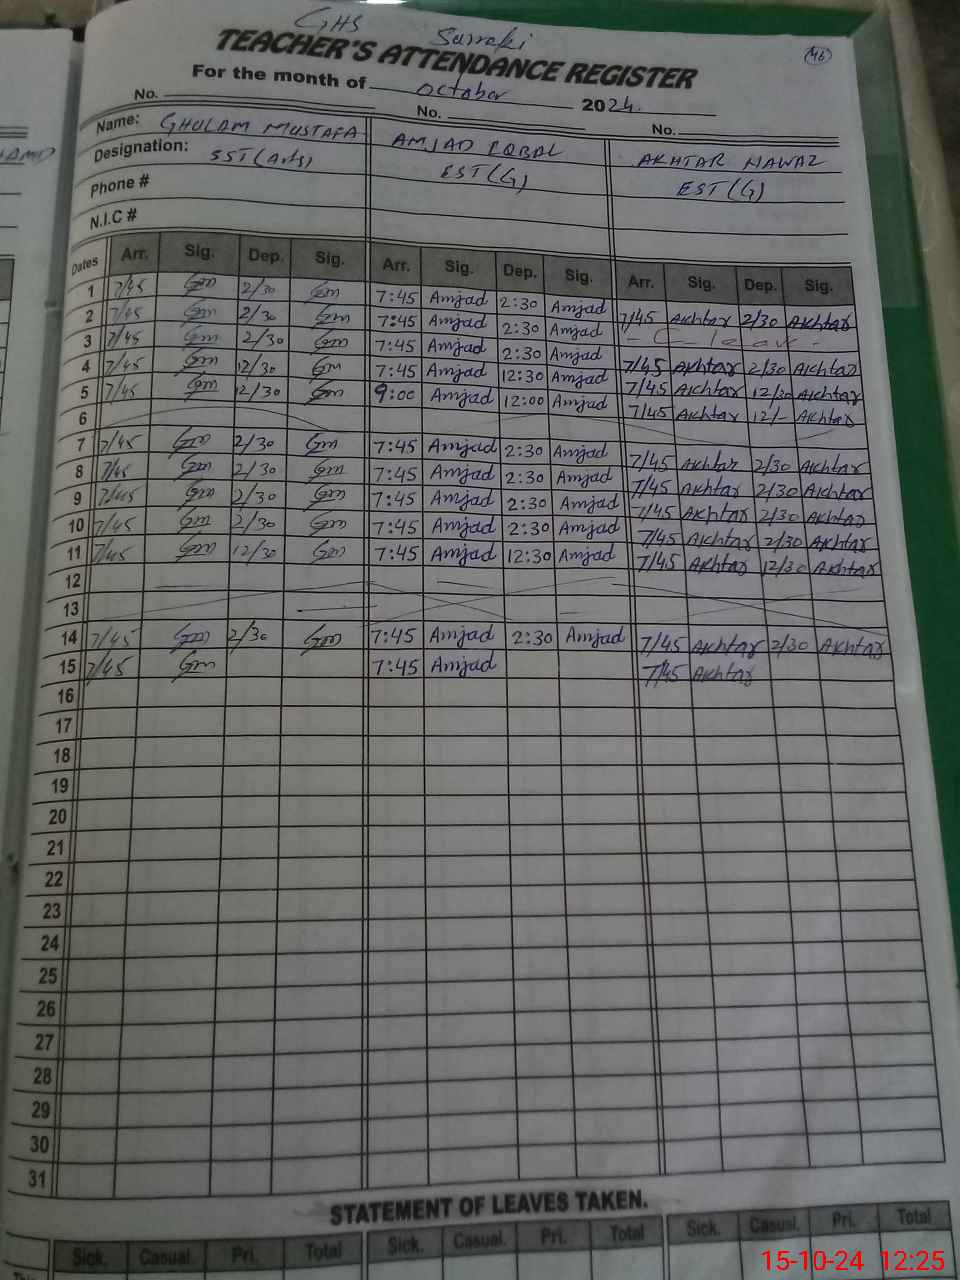 GHS Sarraki
46
TEACHER'S ATTENDANCE REGISTER
For the month of October 2024.
No. No. No.
Name: GHULAM MUSTAFA AMJAD IQBAL AKHTAR NAWAZ
Designation: SST (Arts) EST (G) EST (G)
Phone #
N.I.C #
Dates Arr. Sig. Dep. Sig. Arr. Sig. Dep. Sig. Arr. Sig. Dep. Sig.
1 7/45 Gm 2/30 Gm 7:45 Amjad 2:30 Amjad 7/45 Akhtar 2/30 Akhtar
2 7/45 Gm 2/30 Gm 7:45 Amjad 2:30 Amjad - C leave -
3 7/45 Gm 2/30 Gm 7:45 Amjad 2:30 Amjad 7/45 Akhtar 2/30 Akhtar
4 7/45 Gm 12/30 Gm 7:45 Amjad 12:30 Amjad 7/45 Akhtar 12/30 Akhtar
5 7/45 Gm 12/30 Gm 9:00 Amjad 12:00 Amjad 7/45 Akhtar 12/- Akhtar
6
7 7/45 Gm 2/30 Gm 7:45 Amjad 2:30 Amjad 7/45 Akhtar 2/30 Akhtar
8 7/45 Gm 2/30 Gm 7:45 Amjad 2:30 Amjad 7/45 Akhtar 2/30 Akhtar
9 7/45 Gm 2/30 Gm 7:45 Amjad 2:30 Amjad 7/45 Akhtar 2/30 Akhtar
10 7/45 Gm 2/30 Gm 7:45 Amjad 2:30 Amjad 7/45 Akhtar 2/30 Akhtar
11 7/45 Gm 12/30 Gm 7:45 Amjad 12:30 Amjad 7/45 Akhtar 12/30 Akhtar
12
13
14 7/45 Gm 2/30 Gm 7:45 Amjad 2:30 Amjad 7/45 Akhtar 2/30 Akhtar
15 7/45 Gm 7:45 Amjad 7/45 Akhtar
16
17
18
19
20
21
22
23
24
25
26
27
28
29
30
31
STATEMENT OF LEAVES TAKEN.
Sick. Casual. Pri. Total Sick. Casual. Pri. Total Sick. Casual. Pri. Total
15-10-24 12:25